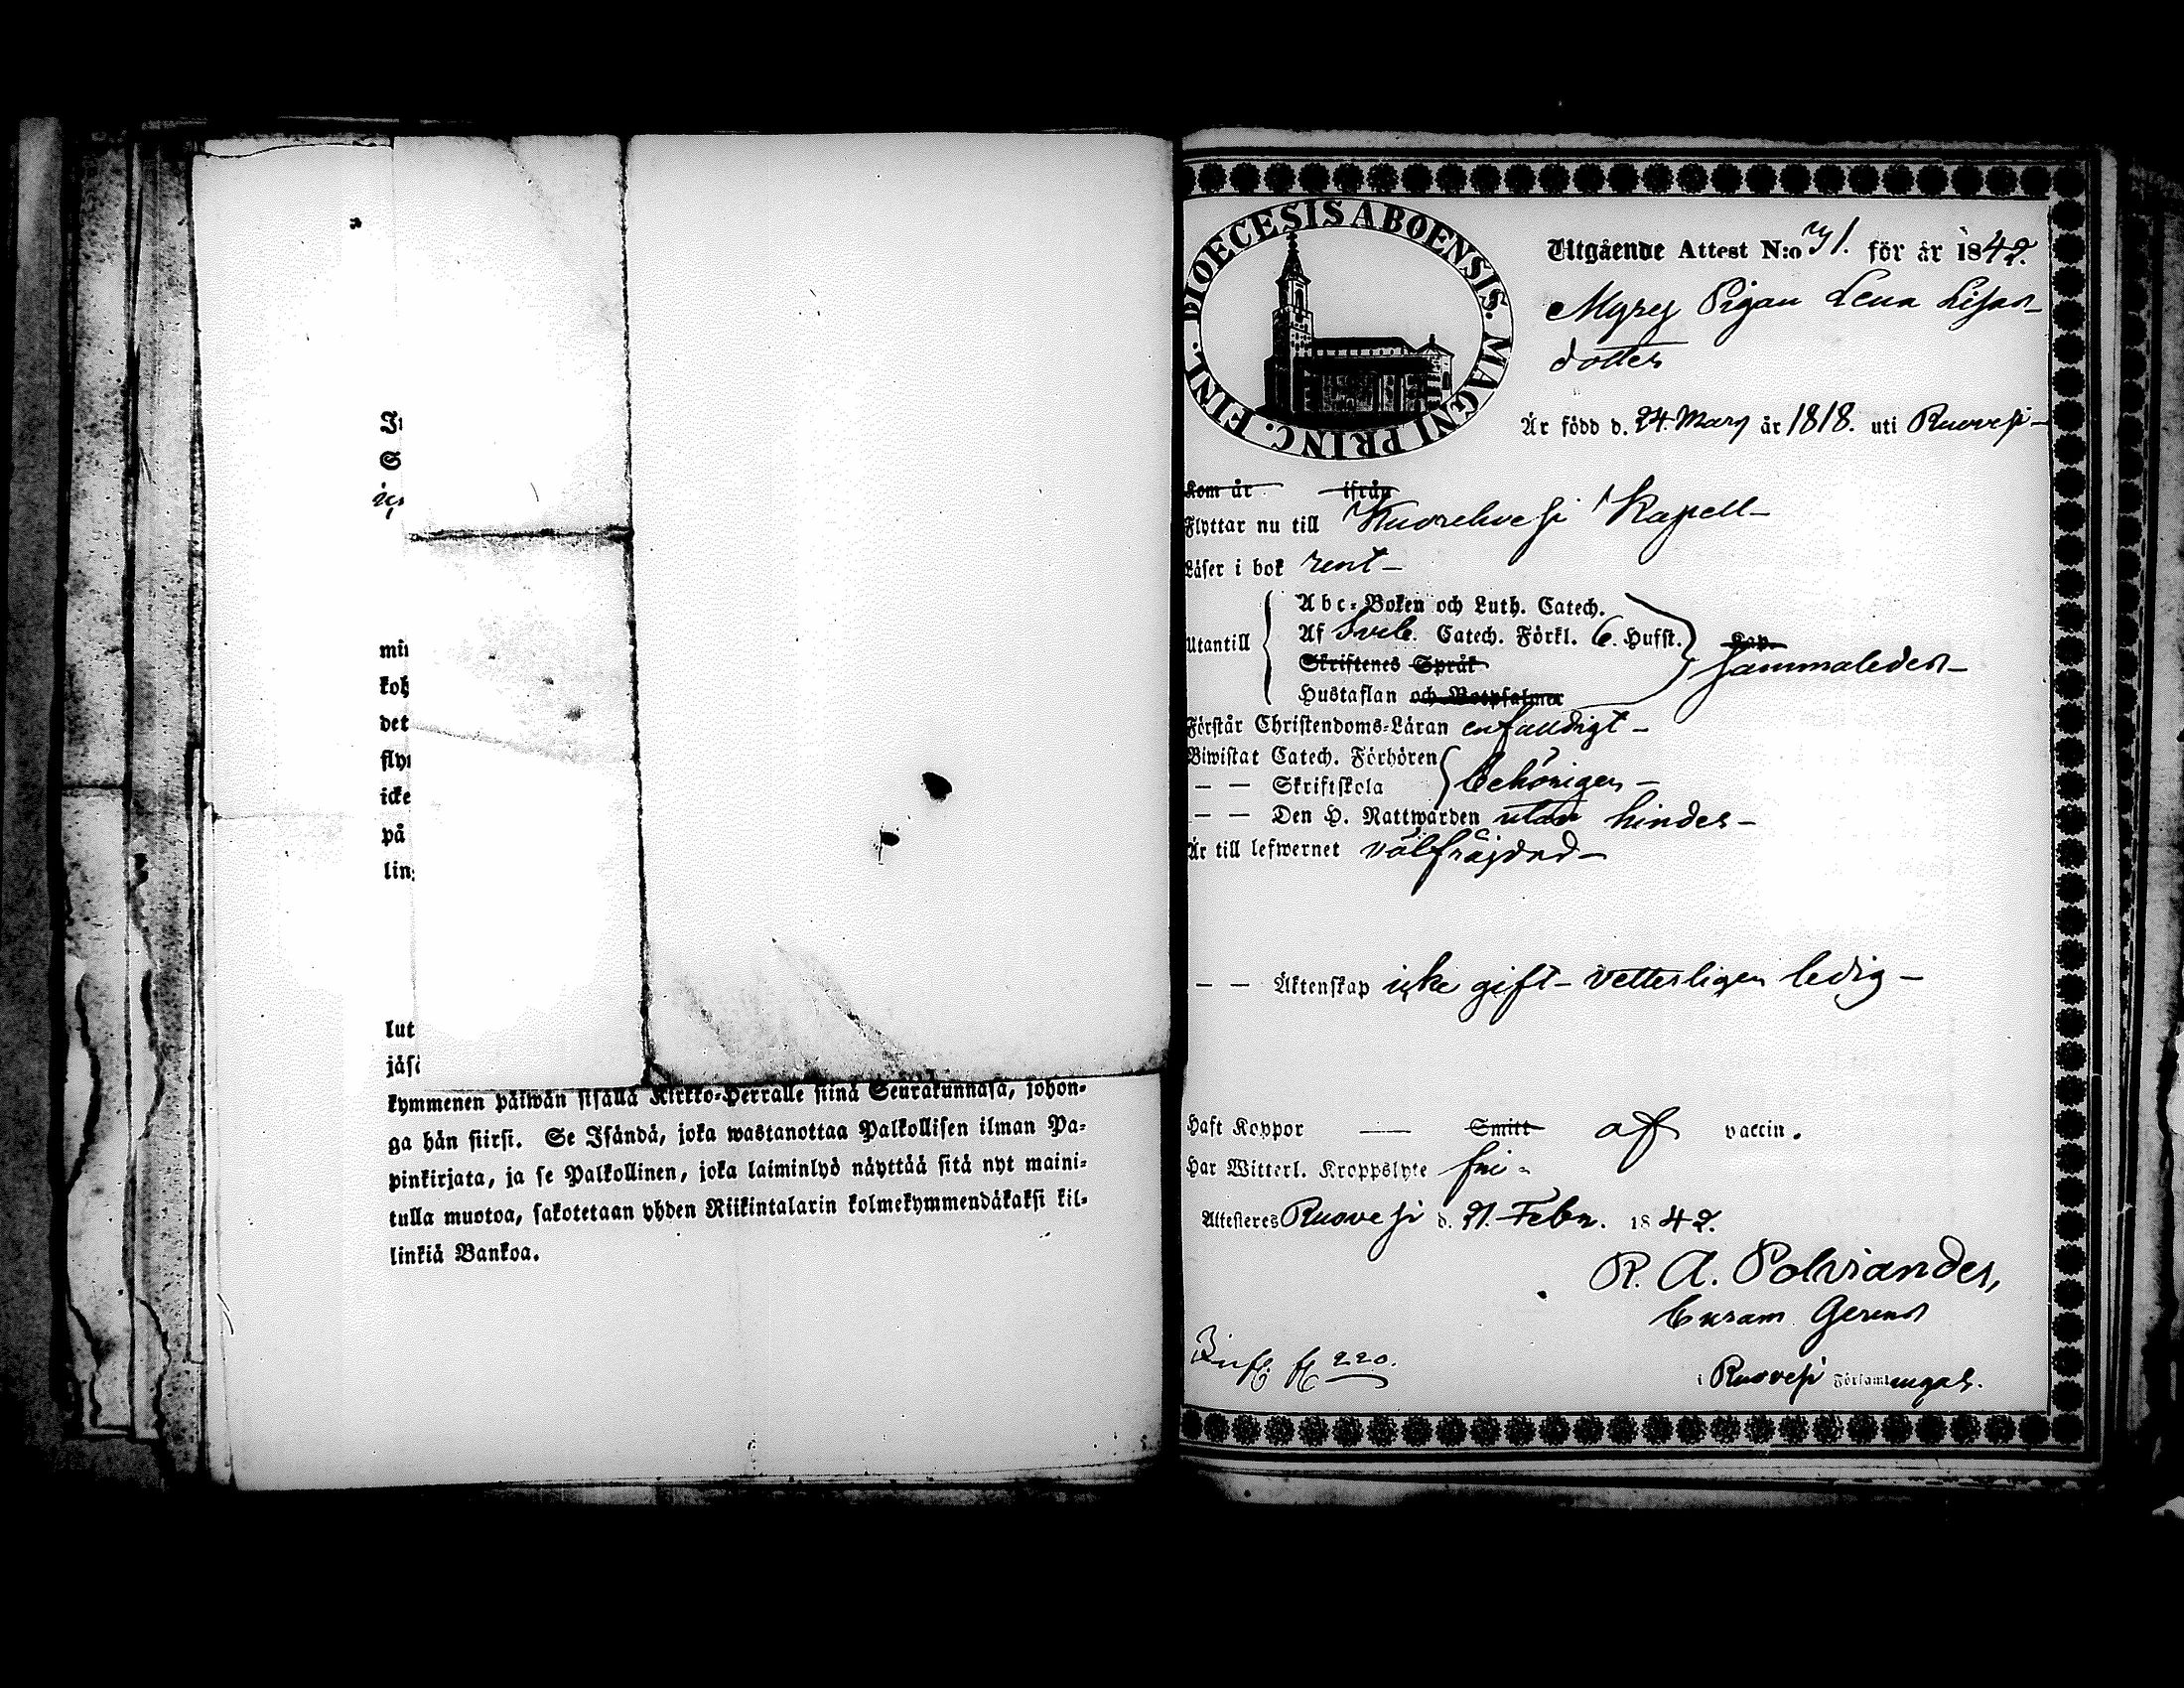 I
S
mi
koh
det
fly
icke
på
lin
lut
jäs
kymmenen päiwän sisällä Kirkko-Herralle siinä Seurakunnasa, johon-
ga hän siirsi. Se Isändä, joka wastanottaa Palkollisen ilman Pa-
pinkirjata, ja se Palkollinen, joka laiminlyö näyttää sitä nyt maini-
tulla muotoa, sakotetaan yhden Riikintalarin kolmekymmendäkaksi kil-
linkiä Bankoa.
DIOECESIS ABOENSIS. MAGNI PRINC. FINL.
Utgående Attest N:o 71. för år 1842.
Pigan Lena Lisas
dotter
Är född d. 24. Mars år 1818. uti Ruovesi
Kom år ifrån
Flyttar nu till Kuorehvesi Kapell
Läser i bok rent
Utantill
Abc-Boken och Luth. Catech.
Af Sveb. Catech. Förkl. 6. Hufst. Kap.
Skriftenes Språk
Hustaflan och Botpsalmer
sammaledes
Förstår Christendoms-Läran enfaldigt
Biwistat Catech. Förhören
— — Skriftskola
behörigen
— — Den H. Nattwarden utan hinder
Är till lefwernet välfräjdad
— — Äktenskap icke gift – vetterligen ledig
Haft Koppor — Smitt af vaccin.
Har Witterl. Kroppslyte fri
Attesteres Ruovesi d. 21. Febr. 1842.
R. A. Polviander,
Curam Gerens
i Ruovesi Församlingar.
220.